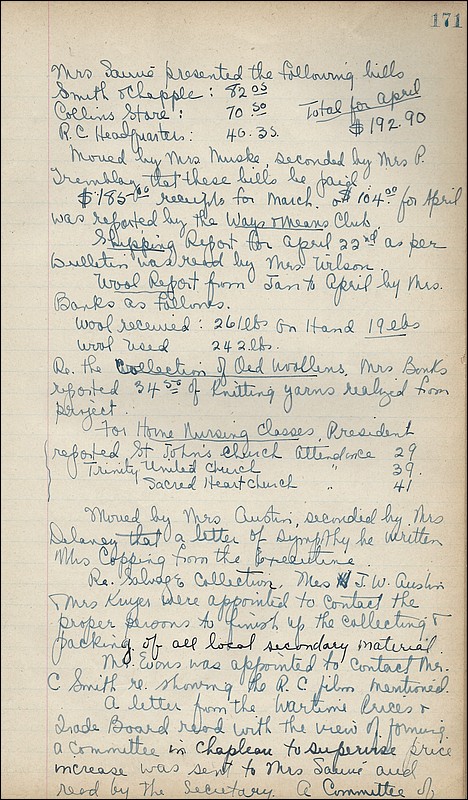 171
Mrs Sauvé presented the following bills
Smith & Chapple: 82 05
Collins Store: 70 50 Total for April
R.C. Headquarters: 40.35 $192.90
Moved by Mrs Muske, seconded by Mrs P.
Tremblay that these bills be paid.
$185 00 receipts for March & $104 00 for April
was reported by the Ways & Means Club.
Shipping Report for April 22nd as per
bulletin was read by Mrs. Wilson.
Wool Report from Jan to April by Mrs.
Banks as follows.
Wool received: 261 lbs On Hand 19 lbs
Wool used 242 lbs.
Re. the Collection of Old Woollens, Mrs Banks
reported 34 50 of Knitting yarns realized from
project.
For Home Nursing Classes, President
reported St John's Church attendance 29
Trinity United Church " 39
Sacred Heart Church " 41
Moved by Mrs Austin, seconded by Mrs
Delaney that a letter of sympathy be written
Mrs Copping from the Executive.
Re. Salvage Collection, Mrs J.W. Austin
& Mrs were appointed to contact the
proper persons to finish up the collecting &
packing of all local secondary material.
Mrs Evans was appointed to contact Mr.
C Smith re. showing the R.C films mentioned.
A letter from the Wartime Prices &
Trade Board read with the view of forming
a committee in Chapleau to supervise price
increase was sent to Mrs Sauvé and
read by the Secretary. A Committee of